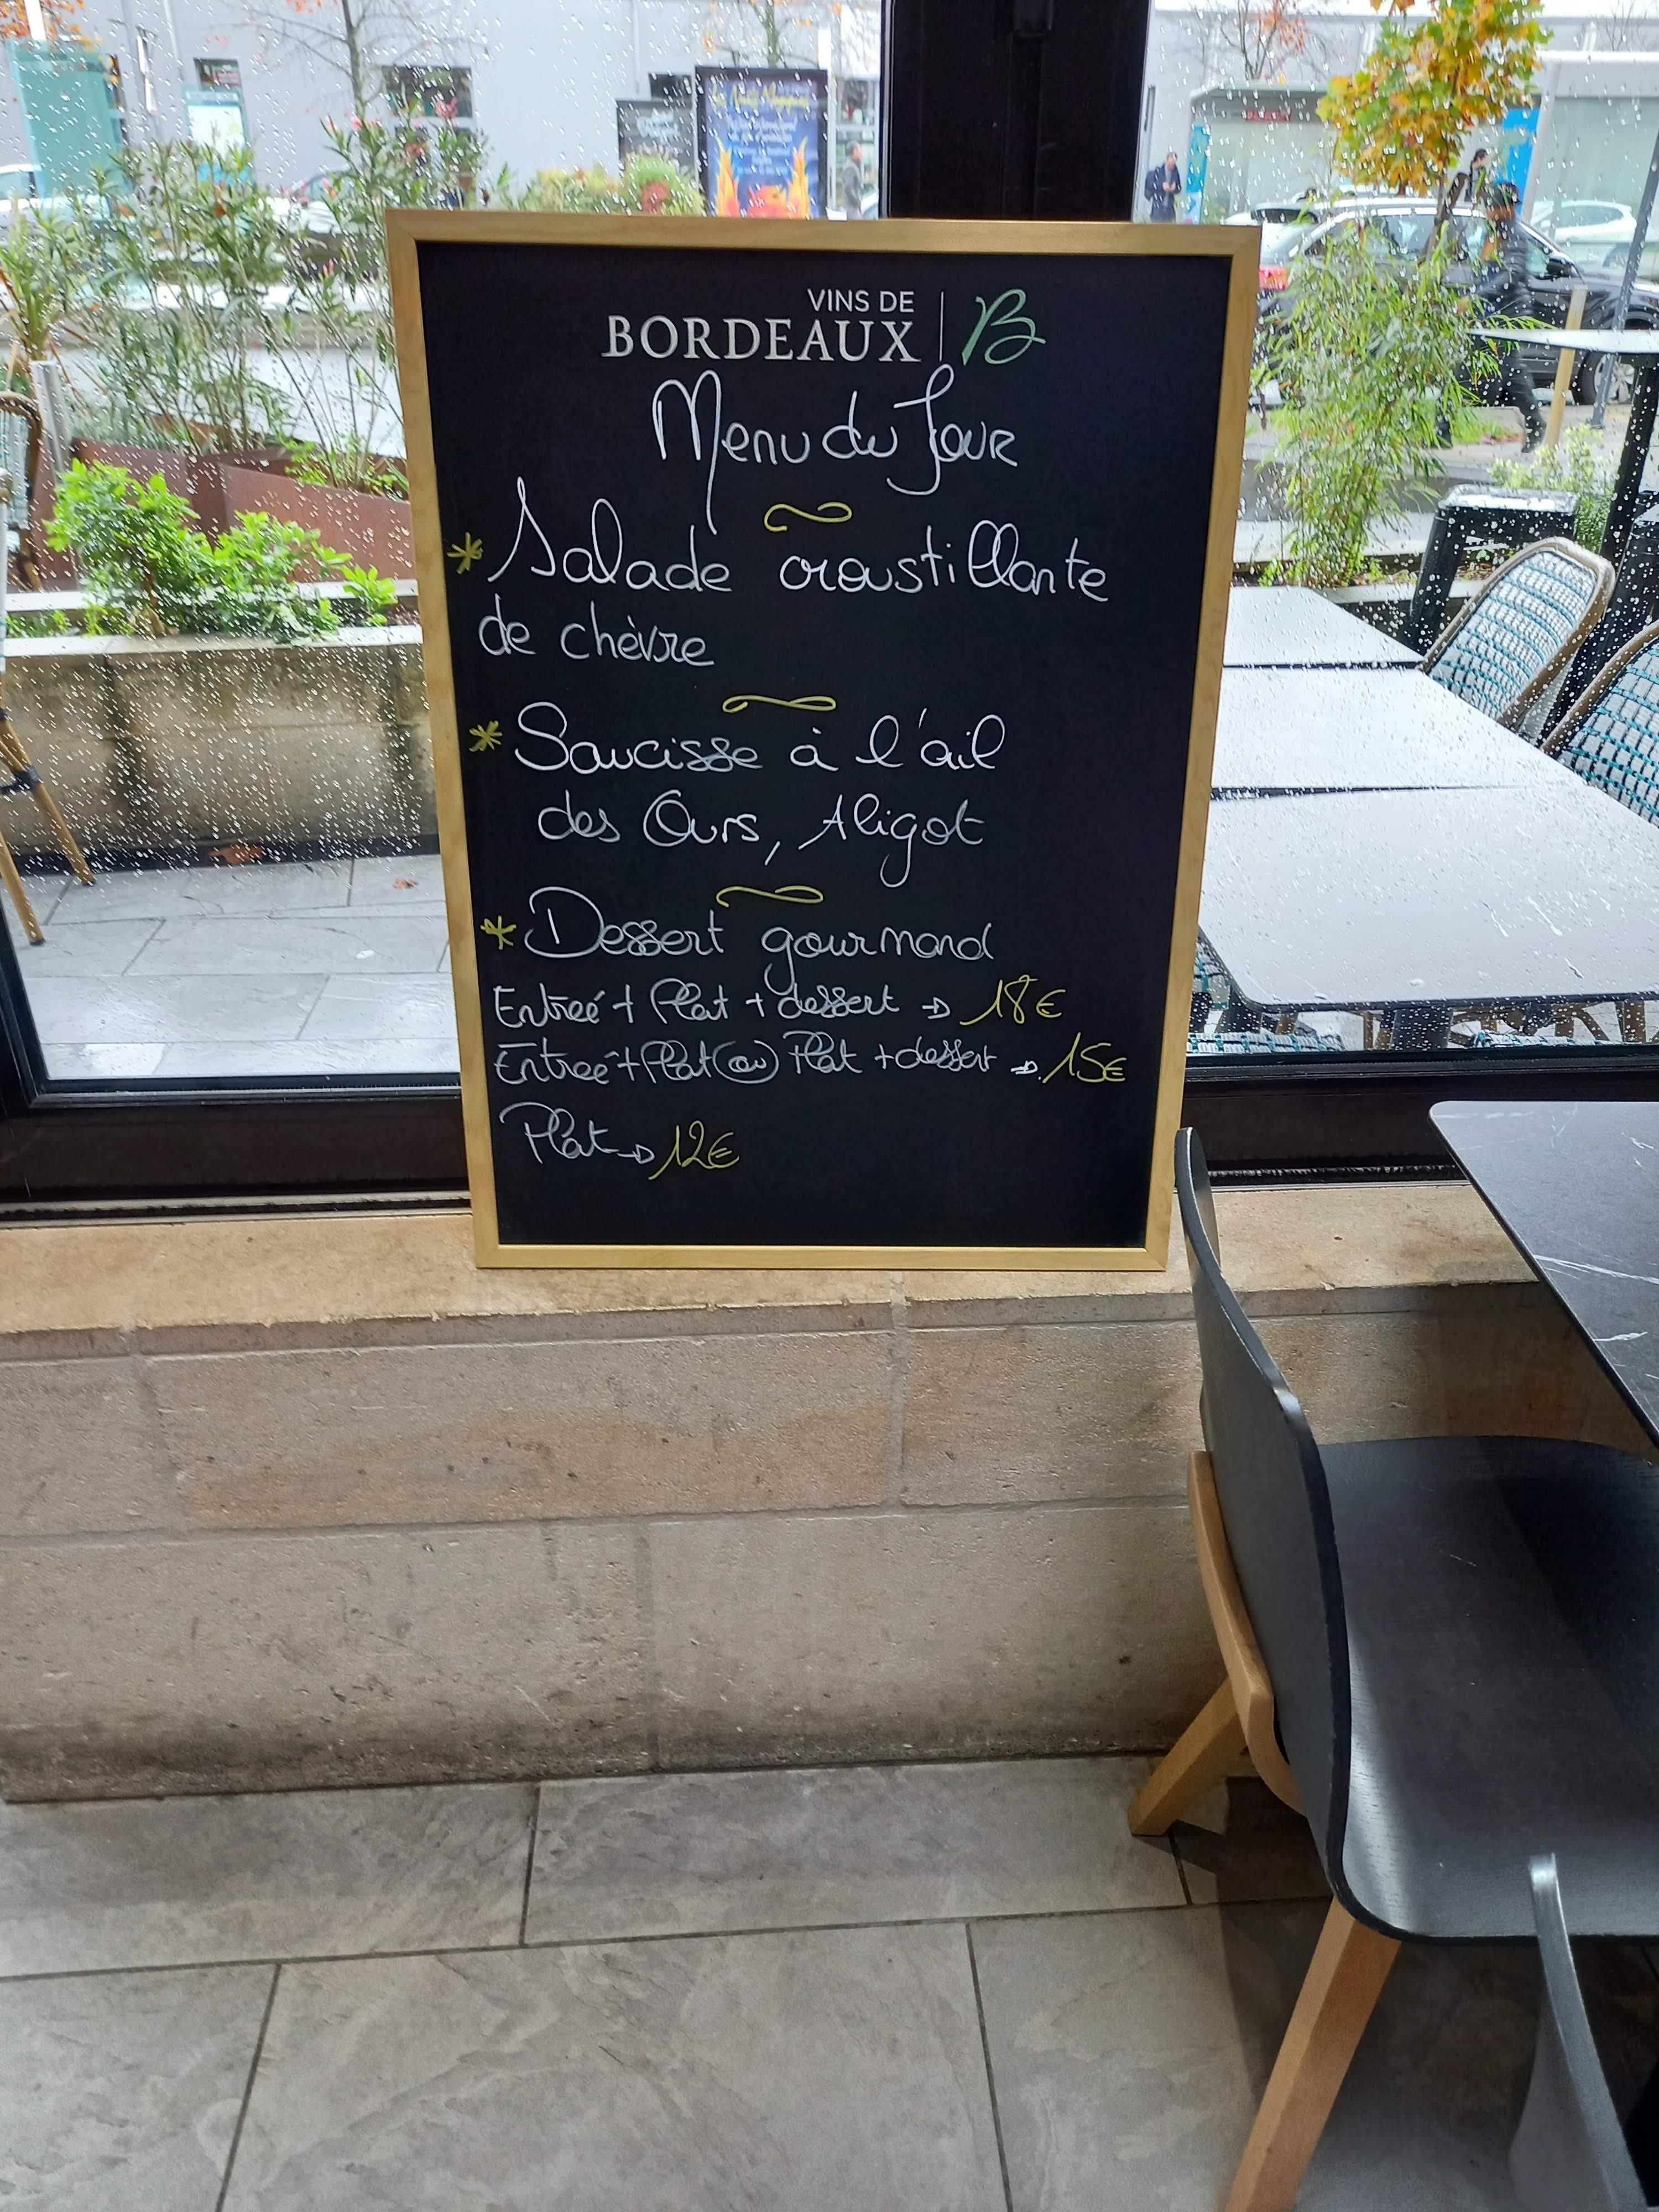 VINS DE
BORDEAUX B
Menu du Jour
* Salade croustillante
de chèvre
* Saucisse à l'ail
des Ours, Aligot
* Dessert gourmand
Entreé + Plat + dessert → 18€
Entreé + Plat (ou) Plat + dessert → 15€
Plat → 12€